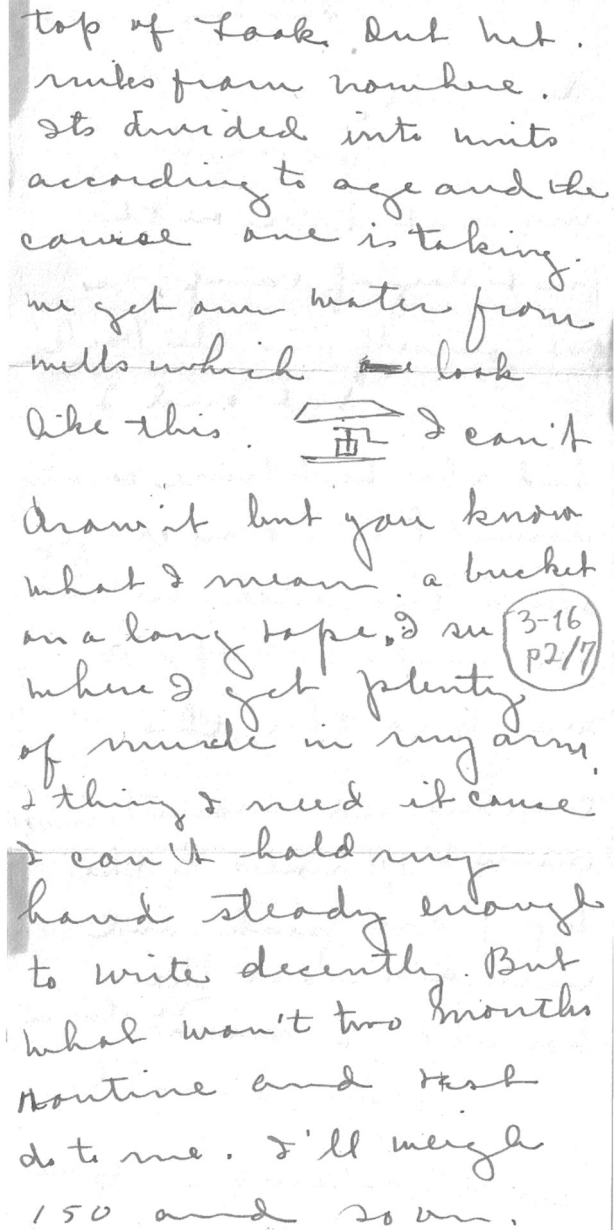 top of Look Out Mt.
miles from nowhere.
Its divided into units
according to age and the
course one is taking.
We get our water from
wells which look
like this. I can't
draw it but you know
what I mean. a bucket
on a long rope. I see
3-16
p2/7
where I get plenty
of muscle in my arm.
I thing I need it cause
I can't hold my
hand steady enough
to write decently. But
what won't two months
routine and rest
do to me. I'll weigh
150 and so on.